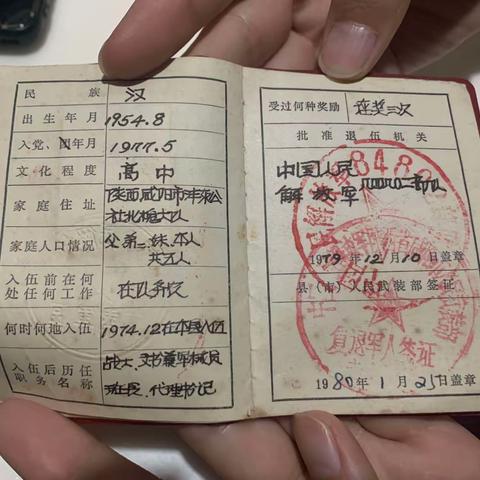 民族 汉
出生年月 1954.8
入党、团年月 1977.5
文化程度 高中
家庭住址 陕西咸阳市沣东公
社北槐大队
家庭人口情况 父、弟二、妹、本人
共五人
入伍前在何
处任何工作 在队务农
何时何地入伍 1974.12在本县入伍
入伍后历任
职务名称 战士、文书兼军械员
班长、代理书记
受过何种奖励 连奖三次
批准退伍机关
中国人民
解放军 部队
1979年12月10日盖章
县(市)人民武装部签证
复退军人签证
1980年1月25日盖章